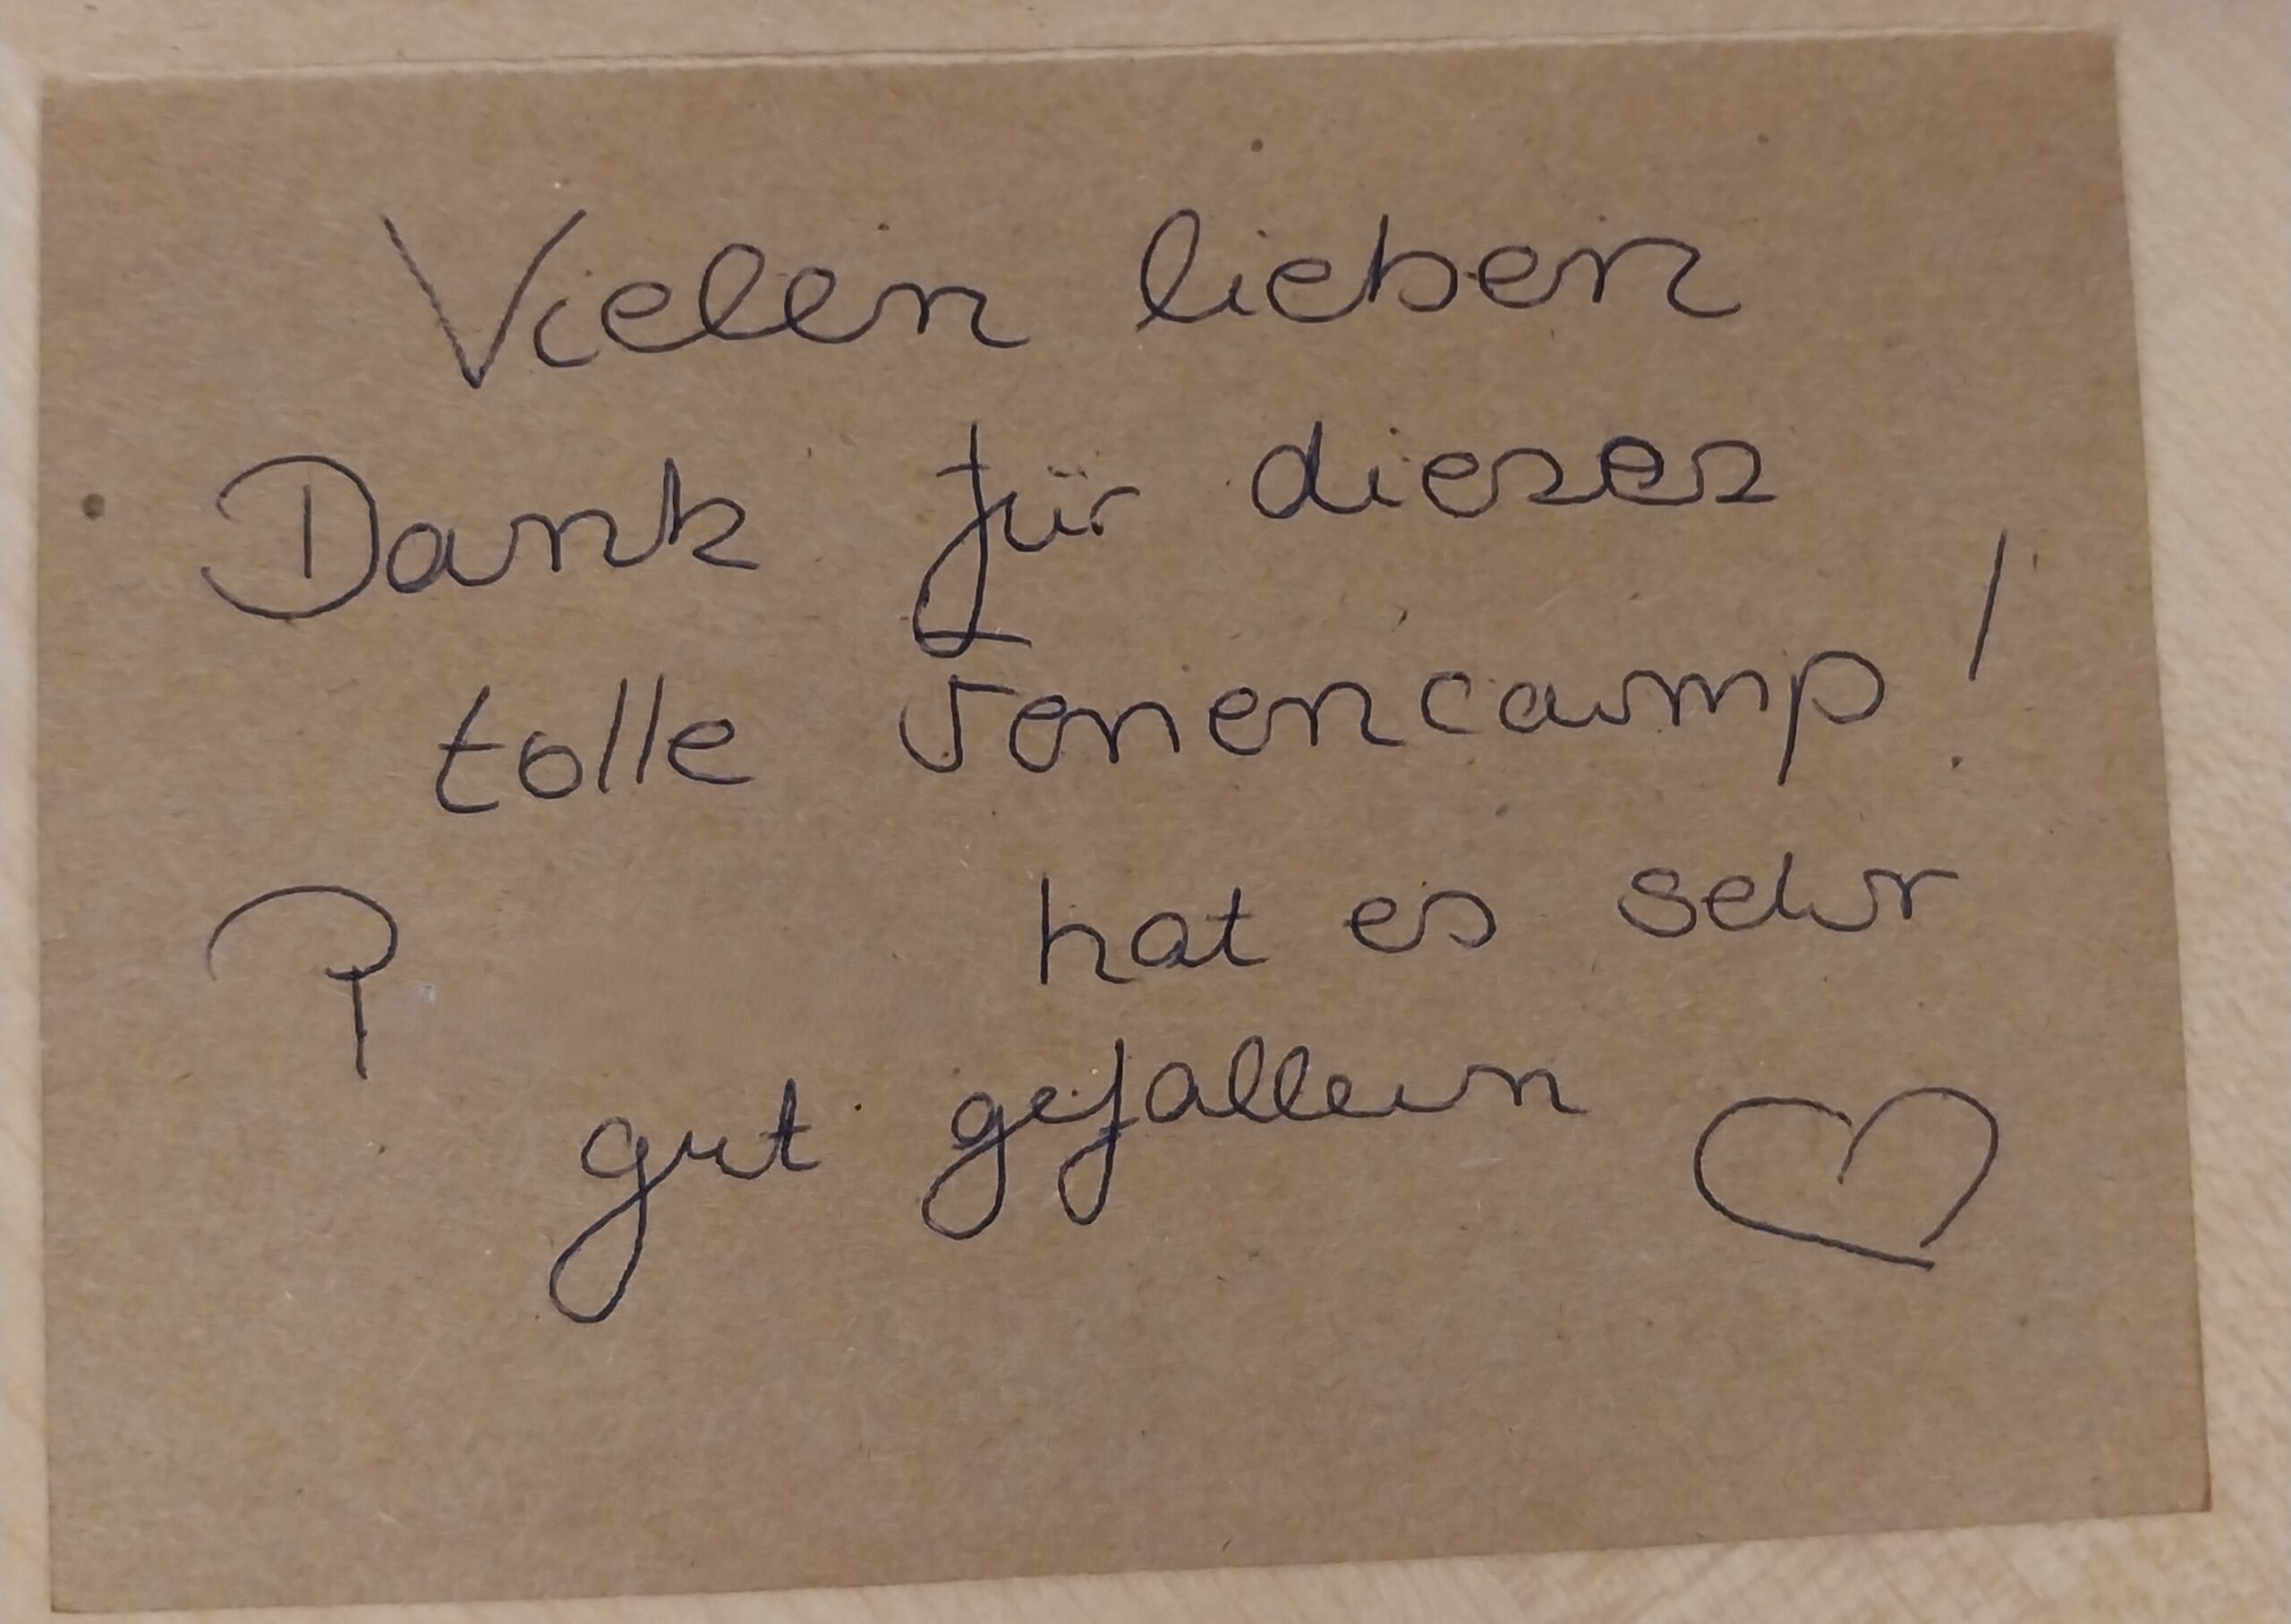 Vielen lieben
Dank für dieses
tolle Feriencamp!
P hat es sehr
gut gefallen